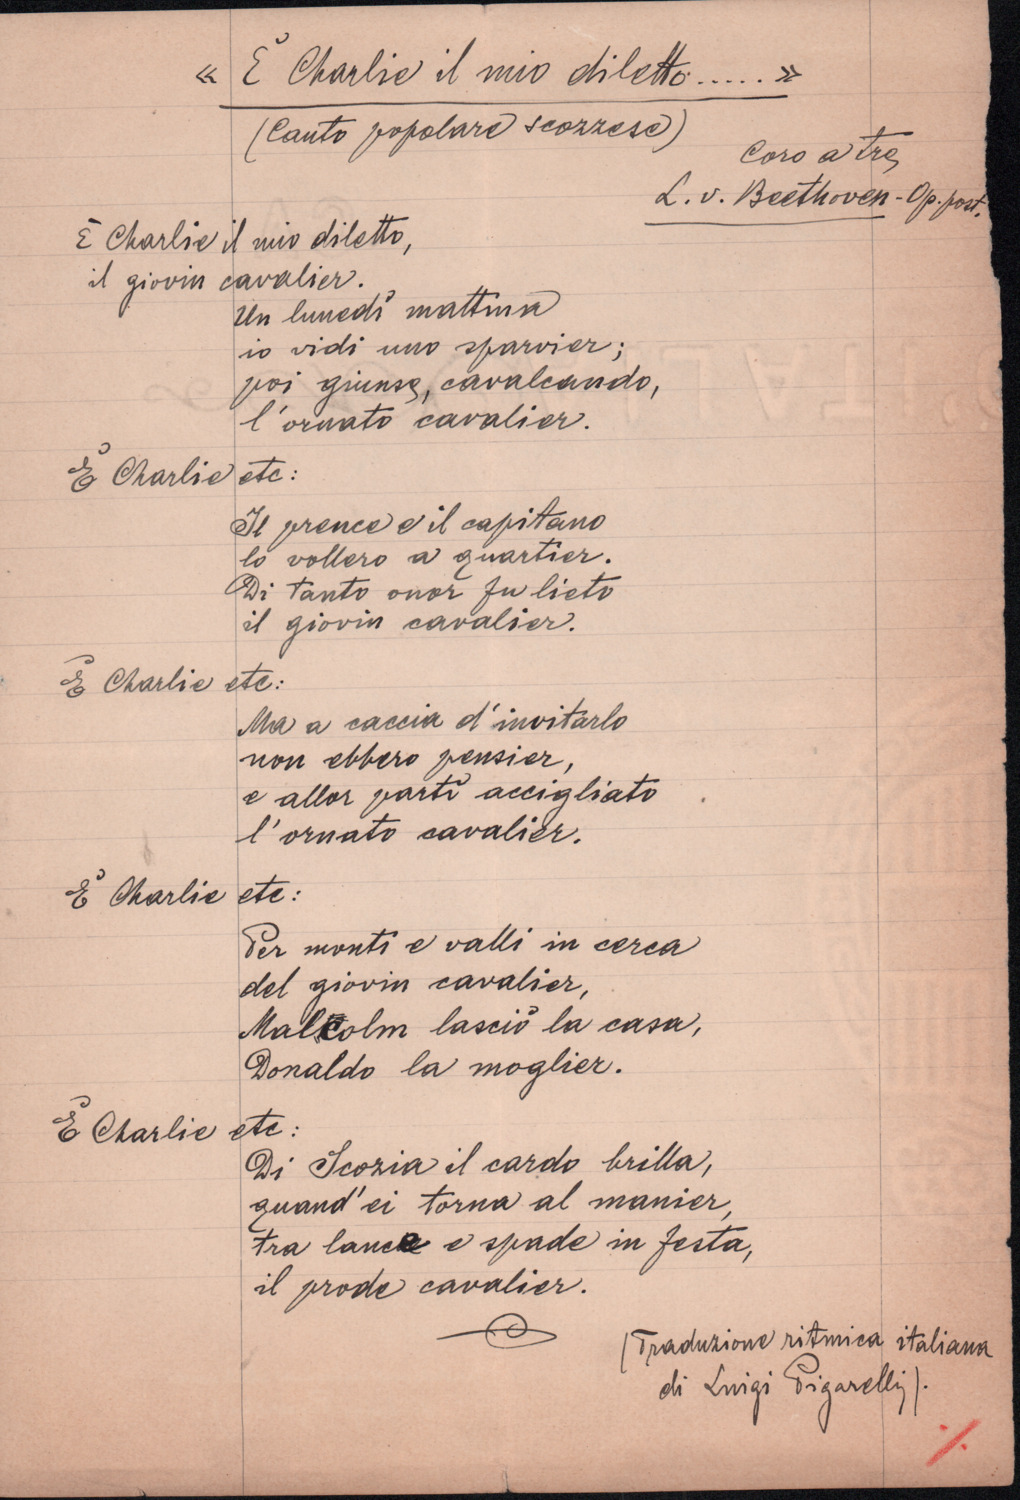 « È Charlie il mio diletto...... »
(Canto popolare scozzese)
Coro a tre
L. v. Beethoven - Op. post.
È Charlie il mio diletto,
il giovin cavalier.
Un lunedì mattina
io vidi uno sparvier;
poi giunse, cavalcando,
l'ornato cavalier.
È Charlie etc:
Il prence e il capitano
lo vollero a quartier.
Di tanto onor fu lieto
il giovin cavalier.
È Charlie etc:
Ma a caccia d'invitarlo
non ebbero pensier,
e allor partì accigliato
l'ornato cavalier.
È Charlie etc:
Per monti e valli in cerca
del giovin cavalier,
Malcolm lasciò la casa,
Donaldo la moglier.
È Charlie etc:
Di Scozia il cardo brilla,
quand'ei torna al manier,
tra lance e spade in festa,
il prode cavalier.
(Traduzione ritmica italiana
di Luigi Pigarelli).